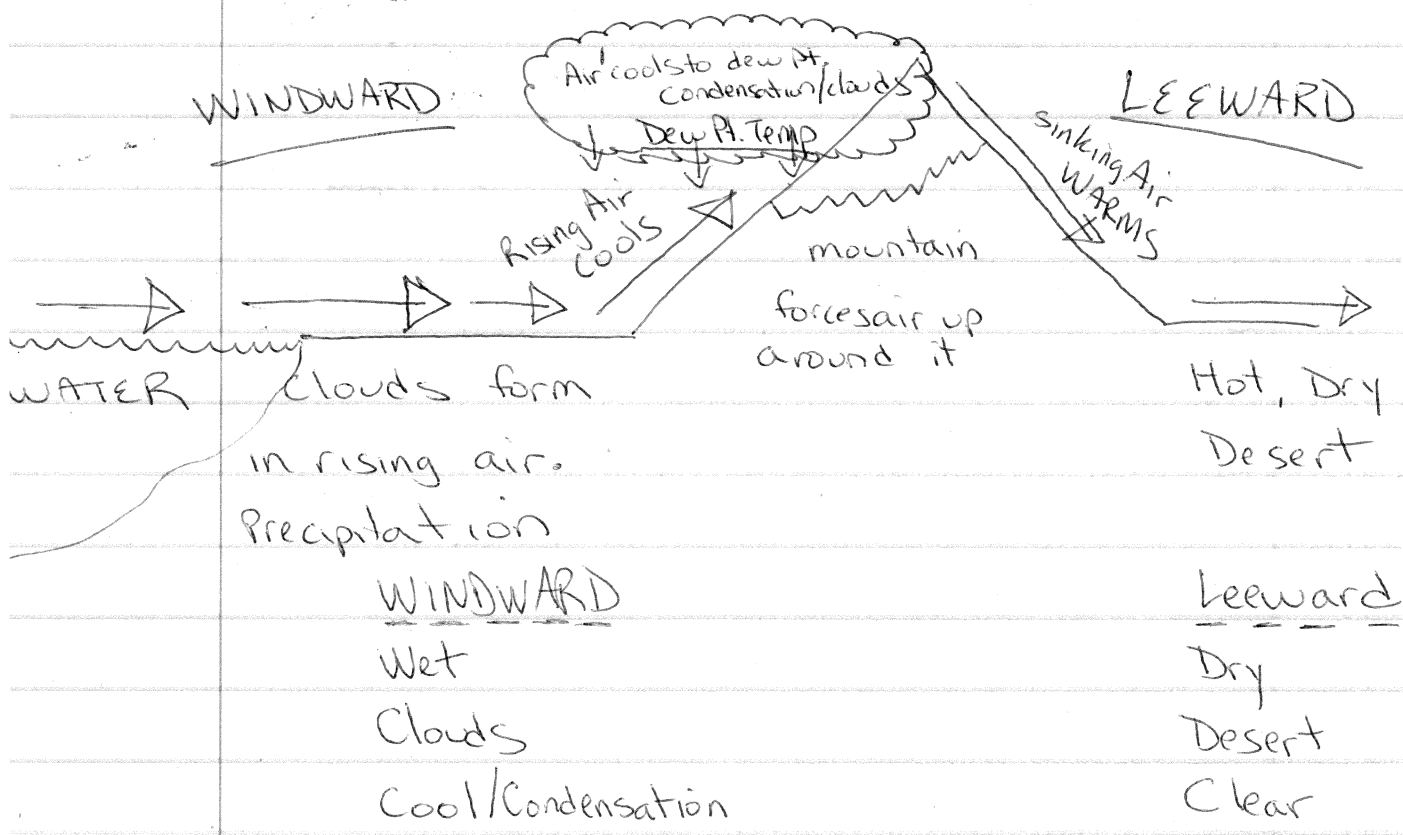 WINDWARD
Air cools to dew pt.
condensation/clouds
Dew Pt. Temp
LEEWARD
Rising Air
cools
sinking Air
WARMS
mountain
forces air up
around it
WATER
Clouds form
in rising air.
Precipitation
Hot, Dry
Desert
WINDWARD
Wet
Clouds
Cool/Condensation
Leeward
Dry
Desert
Clear